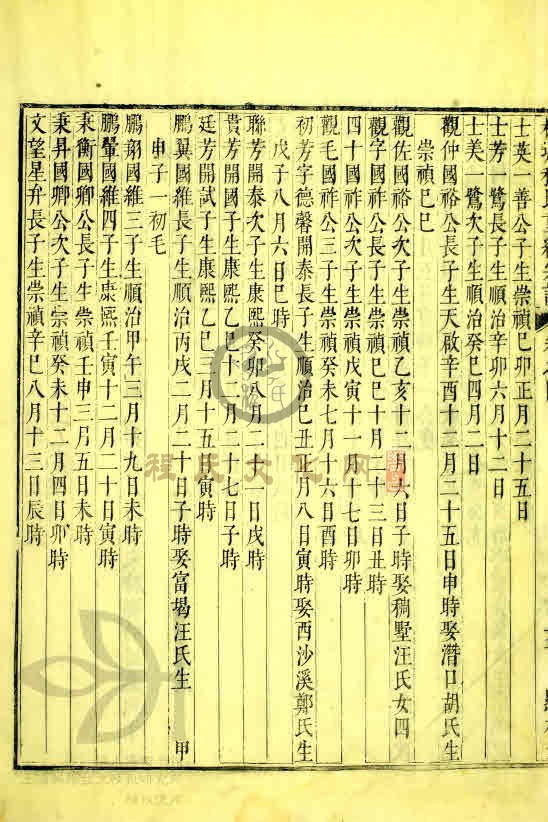 士英一善公子生崇禎己卯正月二十五日
士芳一鷺長子生順治辛卯六月十二日
士美一鷺次子生順治癸巳四月二日
觀仲國裕公長子生天啟辛酉十二月二十五日申時娶潛口胡氏生
崇禎己巳
觀佐國裕公次子生崇禎乙亥十二月六日子時娶稠墅汪氏女四
觀字國祚公長子生崇禎己巳十月二十三日丑時
四十國祚公次子生崇禎戊寅十一月十七日卯時
觀毛國祚公三子生崇禎癸未七月十六日酉時
初芳字德馨開泰長子生順治己丑正月八日寅時娶西沙溪鄭氏生
戊子八月六日巳時
聯芳開泰次子生康熙癸卯八月二十一日戌時
貴芳開國子生康熙乙巳十二月二十七日子時
廷芳開試子生康熙乙巳三月十五日寅時
鵬翼國維長子生順治丙戌二月二十日子時娶富堨汪氏生 甲
申子一初毛
鵬翔國維三子生順治甲午三月十九日未時
鵬翬國維四子生康熙壬寅十二月二十日寅時
秉衡國卿公長子生崇禎壬申三月五日未時
秉昇國卿公次子生崇禎癸未十二月四日卯時
文望星弁長子生崇禎辛巳八月十三日辰時
程氏文化网